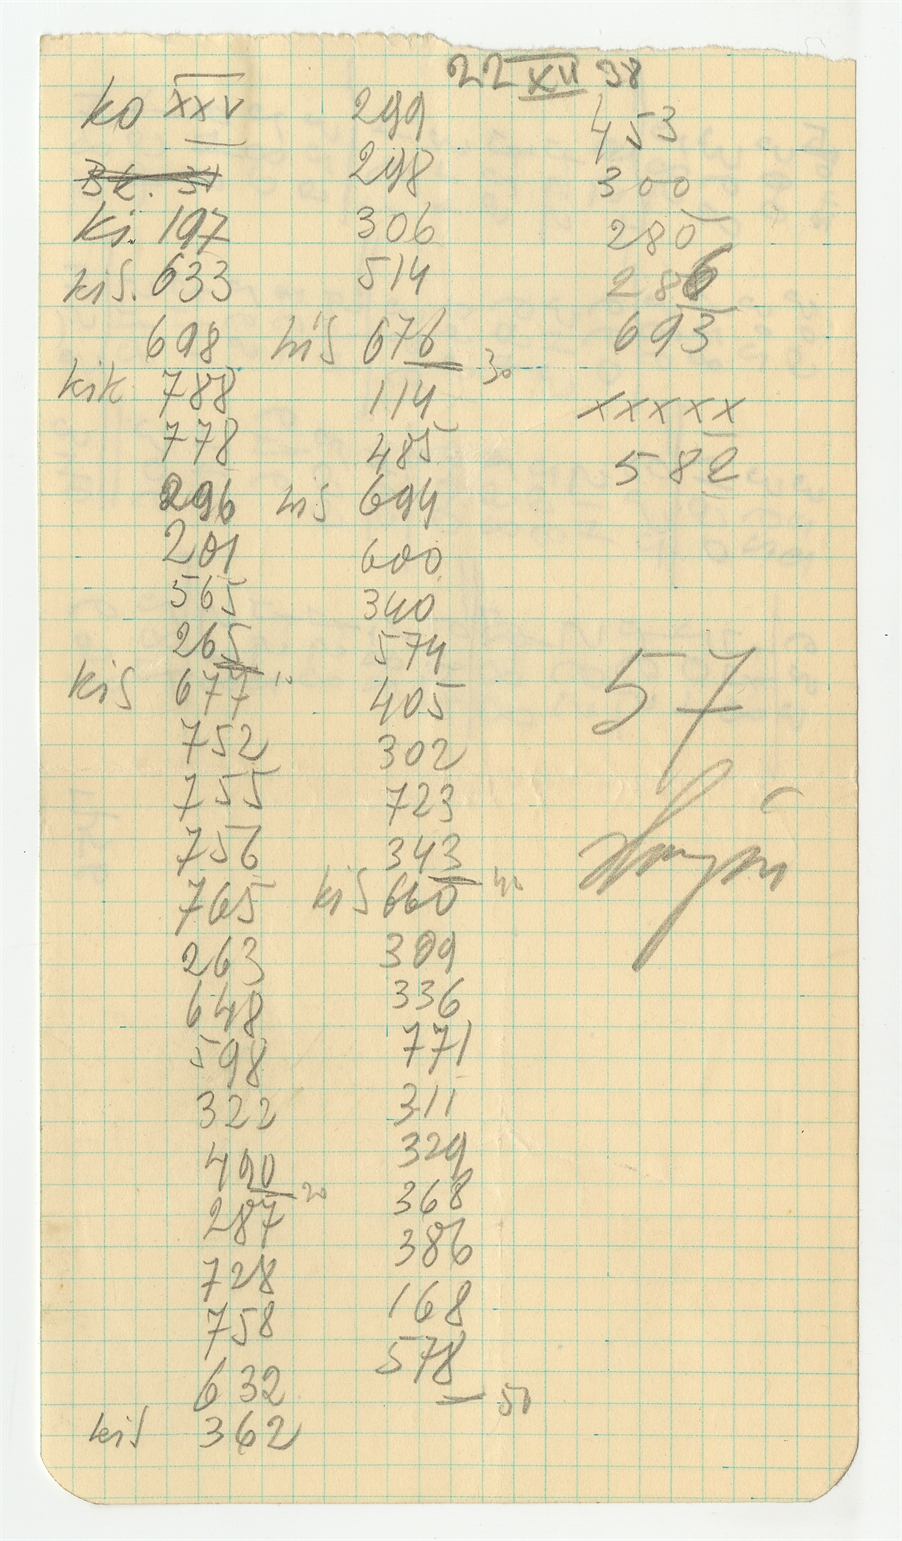 22 XII 38
ko XXV
Bk. 31
ki. 197
kis. 633
698
kik 788
778
296
201
565
265
kis 677 10
752
755
756
765
263
648
598
322
490
287 20
728
758
632
kis 362
299
298
306
514
kis 676
30
114
485
kis 694
600
340
574
405
302
723
343
kis 660 40
309
336
771
311
329
368
386
168
578
50
453
300
280
286
693
XXXXX
582
57